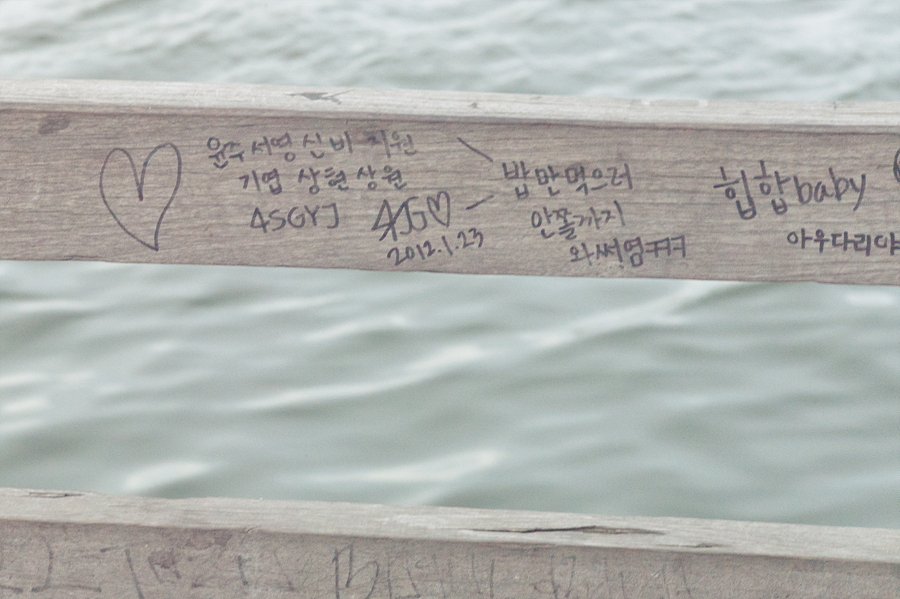 윤주 서영 신비 지원
기엽 상현 상원
4SGYJ
4SG♡
2012.1.23
밥만먹으러
안쫄까지
와써염ㅋㅋ
힙합baby
아우다리야